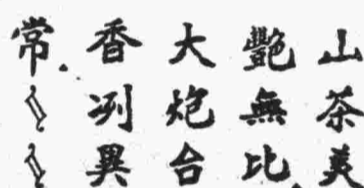 山茶美
艷無比
大炮台
香冽異
常